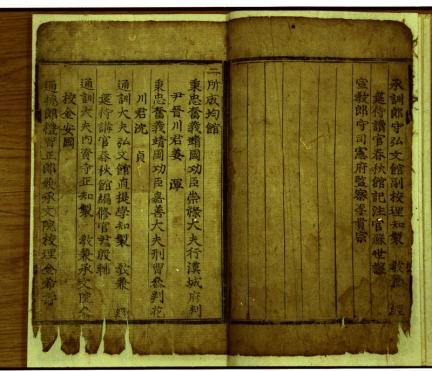 承訓郎守弘文館副校理知製 敎兼 經
筵侍讀官春秋館記注官蘇世讓
宣敎郎守司憲府監察李貫宗
二所成均館
秉忠奮義靖國功臣崇祿大夫行漢城府判
尹晉川君姜 渾
秉忠奮義靖國功臣嘉善大夫刑曹參判花
川君沈 貞
通訓大夫弘文館直提學知製 敎兼 經
筵侍講官春秋館編修官尹殷輔
通訓大夫內資寺正知製 敎兼承文院參
校金安國
通德郎禮曹正郎兼承文院校理金希壽